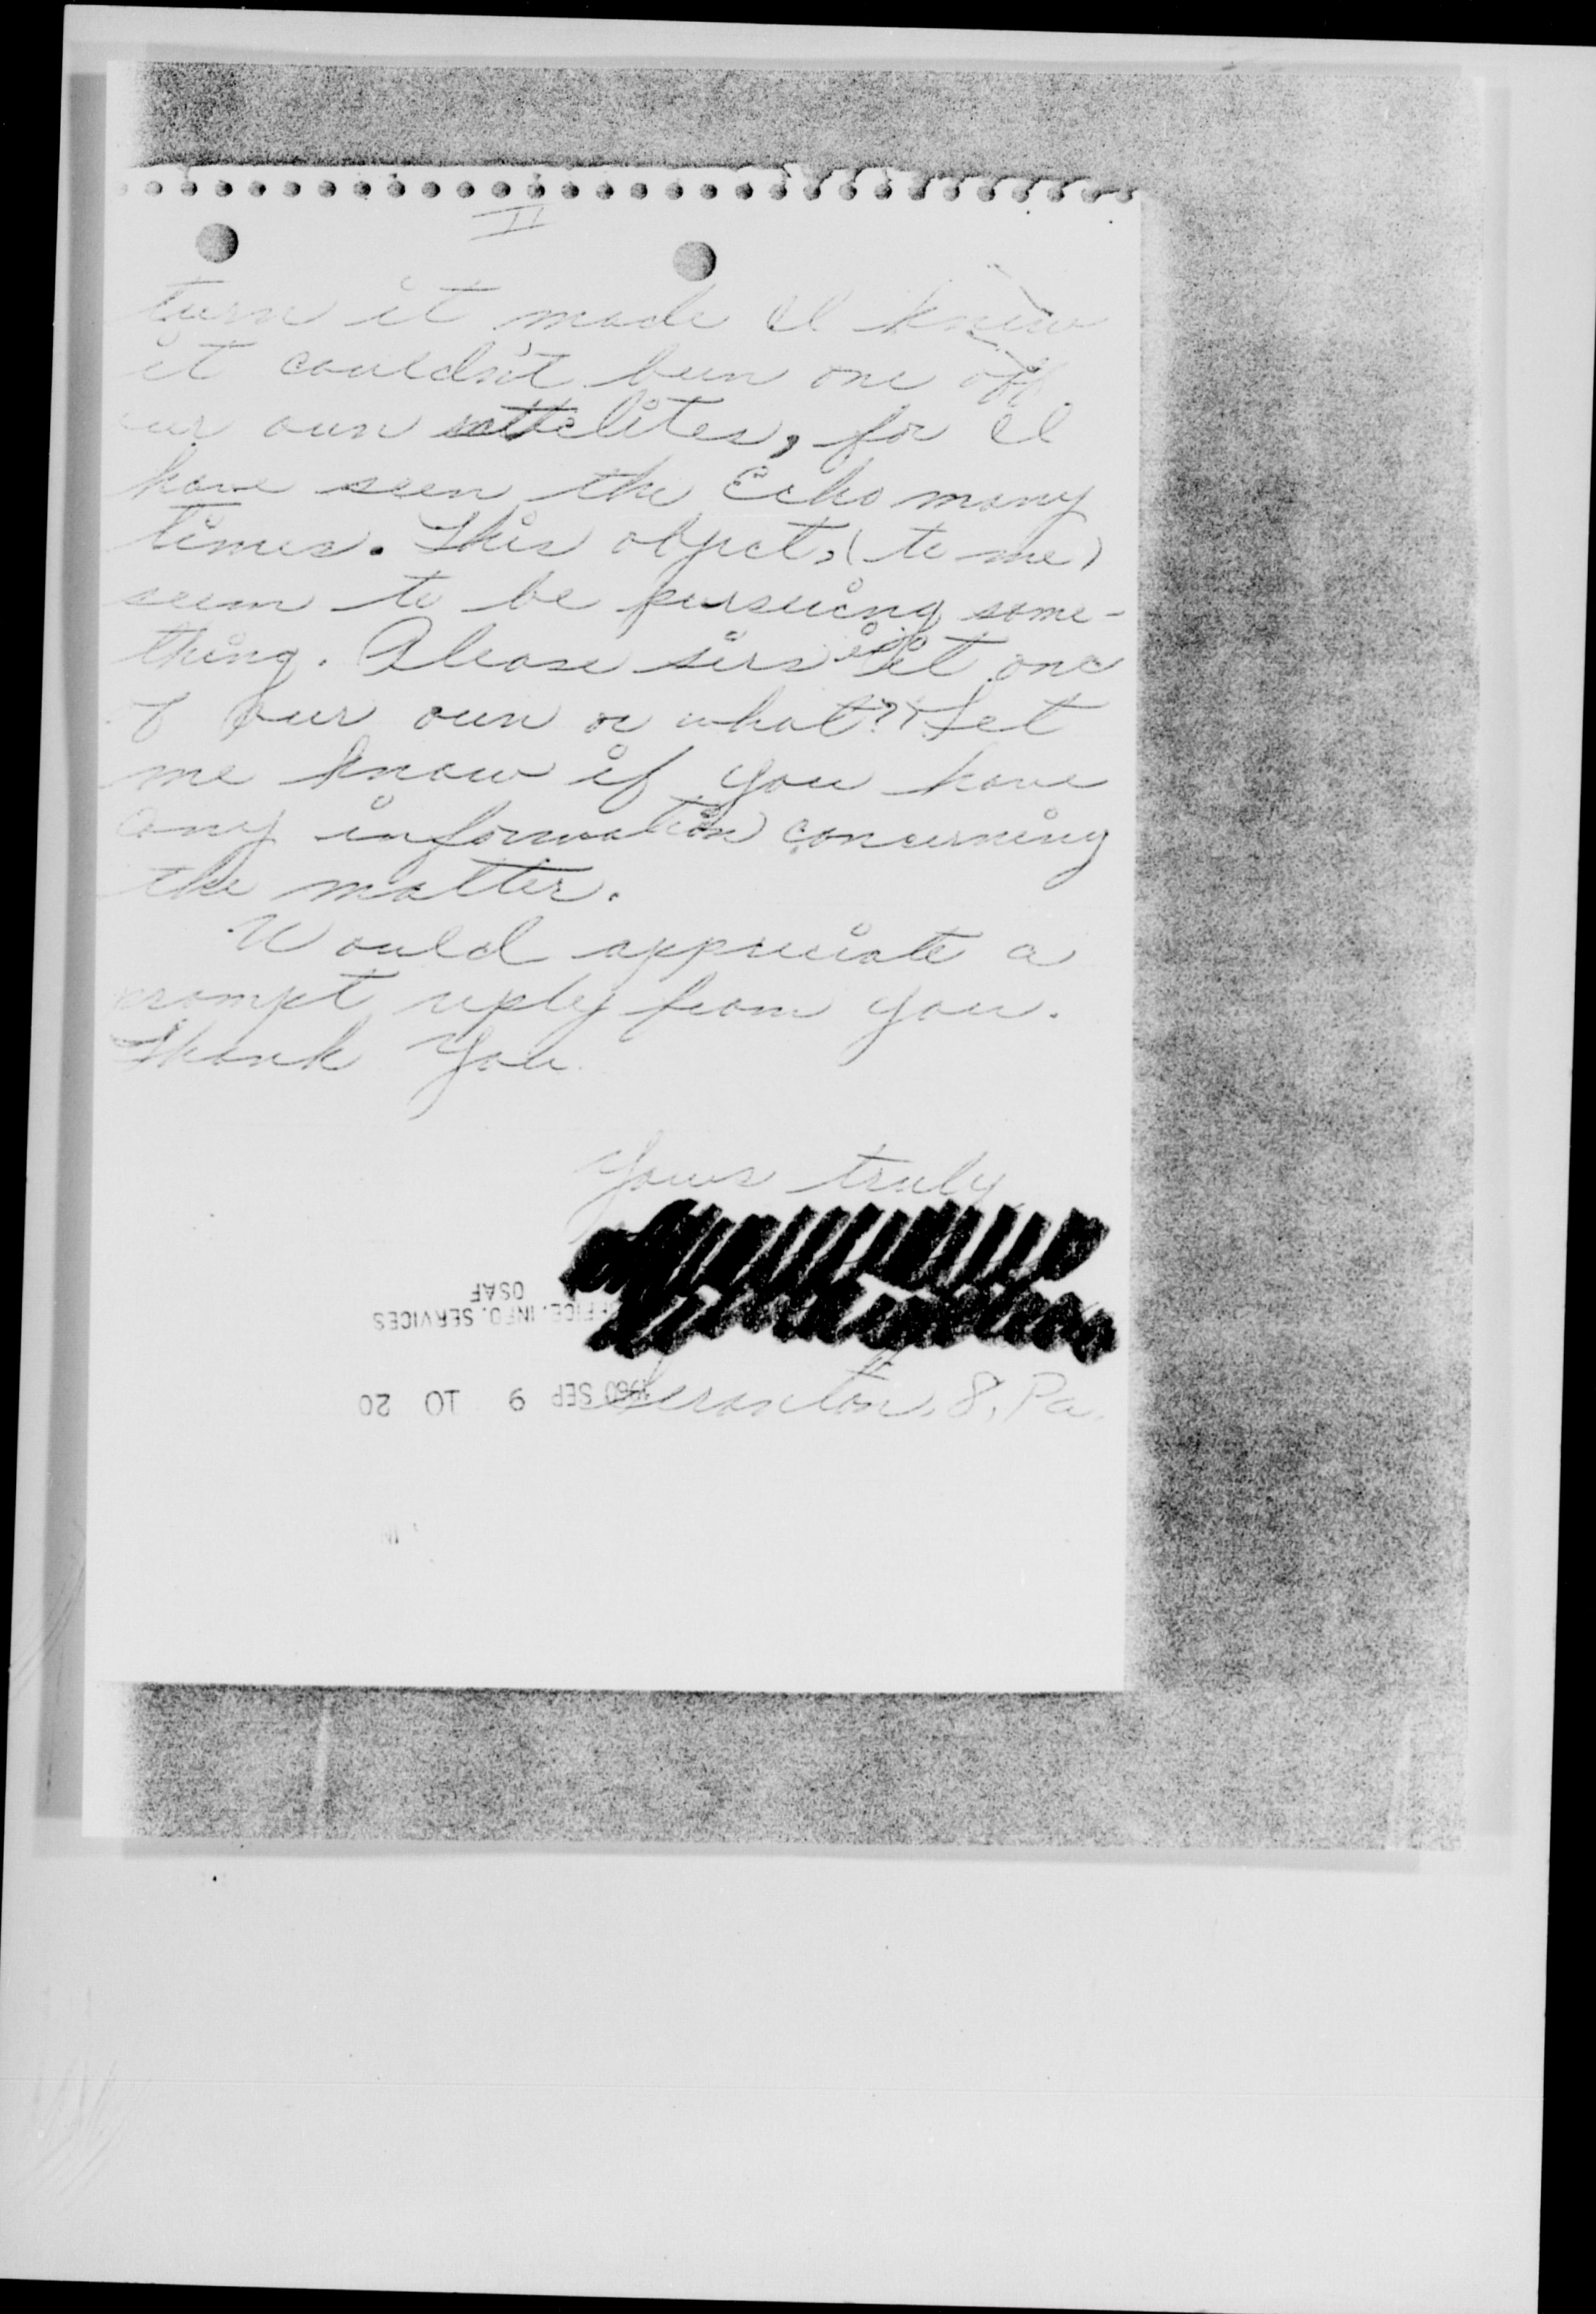 II
turn it made I knew
it couldn't been one off
our own sattelites, for I
have seen the Echo many
times. This object, (to me)
seem to be pursuing some-
thing. Please sirs is it one
of our own or what? Let
me know if you have
any information concerning
the matter.
Would appreciate a
prompt reply from you.
Thank You.
Yours truly
Scranton, 8, Pa.
OFFICE. INFO. SERVICES
OSAF
1960 SEP 9 10 20